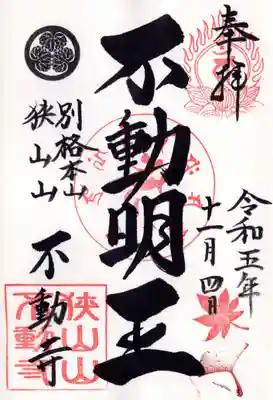 奉拝
令和五年
十一月四日
不動明王
別格本山
狭山山
不動寺
狭山山
不動寺